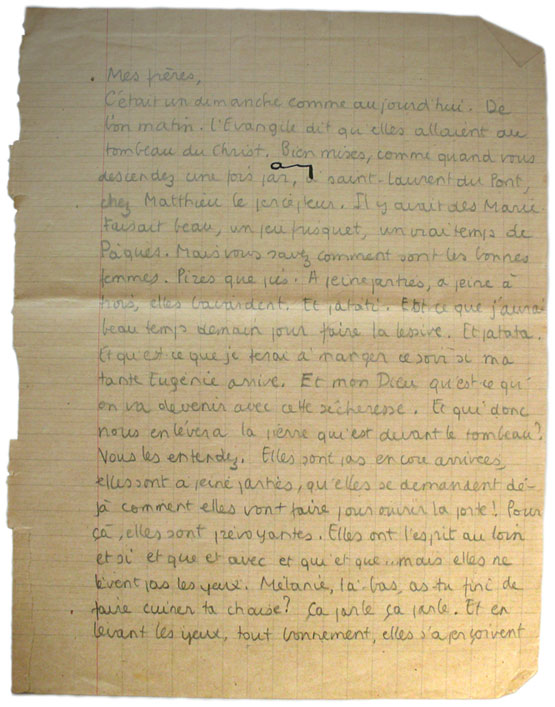 Mes frères,
C'était un dimanche comme aujourd'hui. De
bon matin. l'Evangile dit qu'elles allaient au
tombeau du Christ. Bien mises, comme quand vous
descendez une fois par an, à saint-Laurent du Pont,
chez Matthieu le percepteur. Il y avait des Marie.
Faisait beau, un peu frisquet, un vrai temps de
Pâques. Mais vous savez comment sont les bonnes
femmes. Pires que pies. A peine parties, a peine à
trois, elles bavardent. Et patati. Est ce que j'aurai
beau temps demain pour faire la lessive. Et patata.
Et qu'est ce que je ferai à manger ce soir si ma
tante Eugénie arrive. Et mon Dieu qu'est ce qu'
on va devenir avec cette sécheresse. Et qui donc
nous enlèvera la pierre qui est devant le tombeau?
Vous les entendez. Elles sont pas encore arrivées,
elles sont a peine parties, qu'elles se demandent dé-
jà comment elles vont faire pour ouvrir la porte! Pour
çà, elles sont prévoyantes. Elles ont l'esprit au loin
et si et que et avec et qui et que.. mais elles ne
lèvent pas les yeux. Mélanie, là-bas, as-tu fini de
faire couiner ta chaise? Ça parle ça parle. Et en
levant les yeux, tout bonnement, elles s'aperçoivent